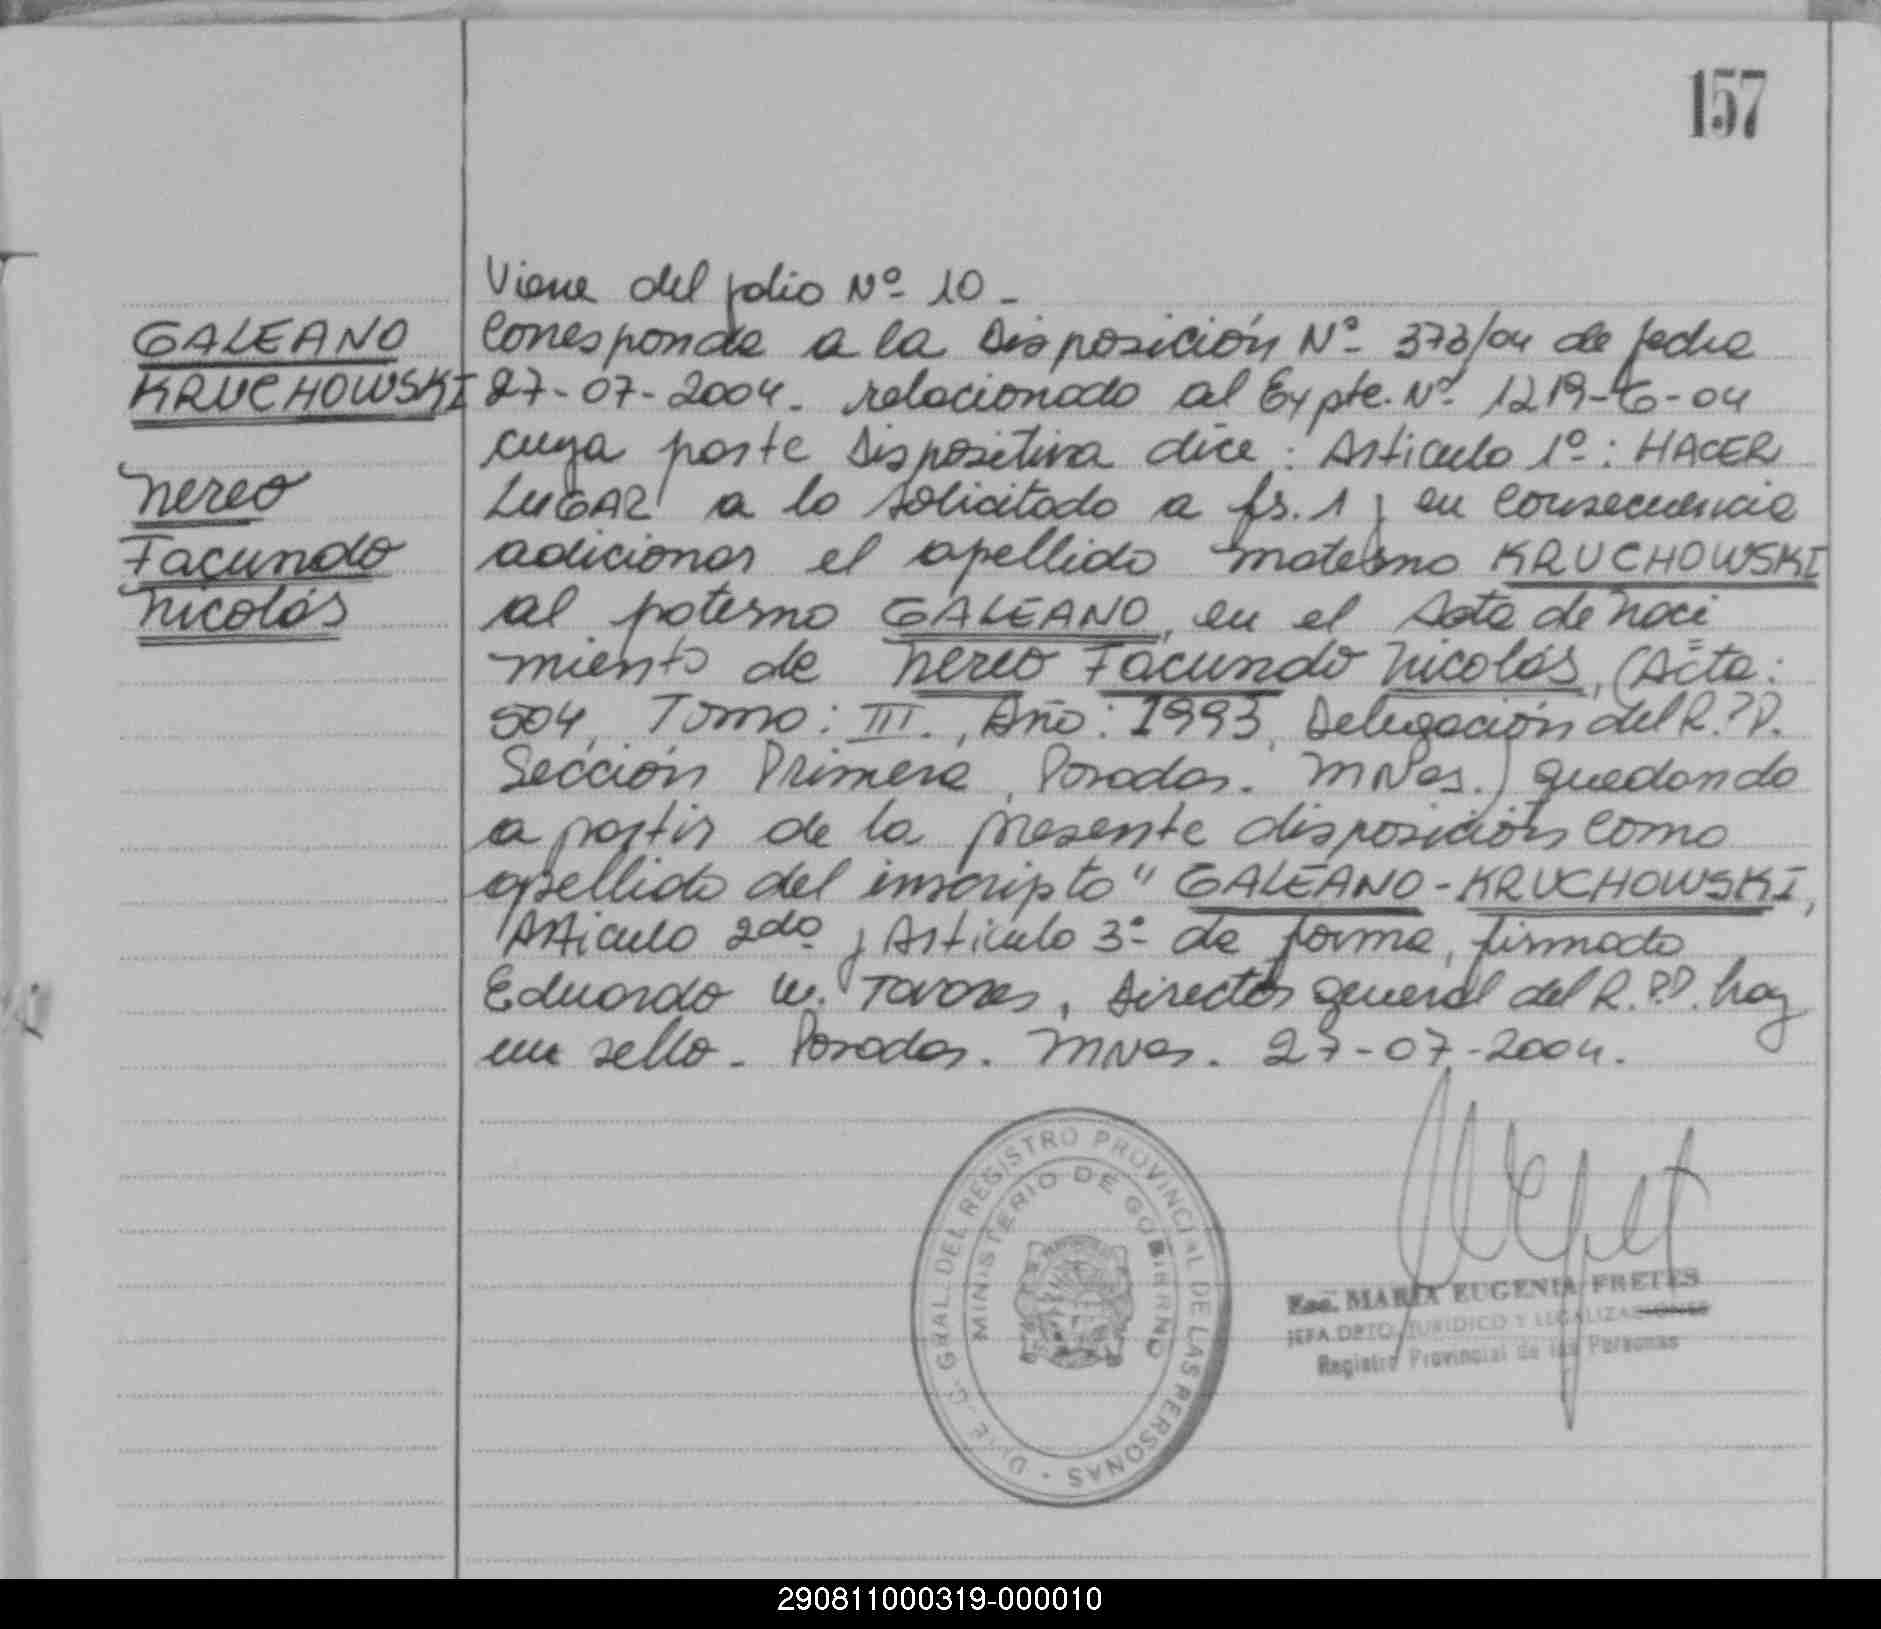 157
Viene del folio Nº 10 -
GALEANO
KRUCHOWSKI
Nereo
Facundo
Nicolás
Corresponde a la Disposición Nº 373/04 de fecha
27-07-2004. relacionado al Expte. Nº 1219-G-04
cuya parte Dispositiva dice: Articulo 1º: HACER
LUGAR a lo solicitado a fs. 1 y en consecuencia
adicionar el apellido materno KRUCHOWSKI
al paterno GALEANO, en el Acta de Naci
miento de Nereo Facundo Nicolás, (Acta:
504, Tomo: III., Año: 1993, Delegación del R.P.P.
Sección Primera, Posadas. MNes.) quedando
a partir de la presente disposición como
apellido del inscripto "GALEANO-KRUCHOWSKI,
Articulo 2do y Articulo 3º de forma, firmado
Eduardo W. Tavares, Director general del R.P.P. hay
un sello - Posadas. MNes. 27-07-2004.
DIRE.G. GRAL. DEL REGISTRO PROVINCIAL DE LAS PERSONAS
MINISTERIO DE GOBIERNO
Esc. MARIA EUGENIA FRETES
JEFA DPTO. JURIDICO Y LEGALIZACIONES
Registro Provincial de las Personas
290811000319-000010